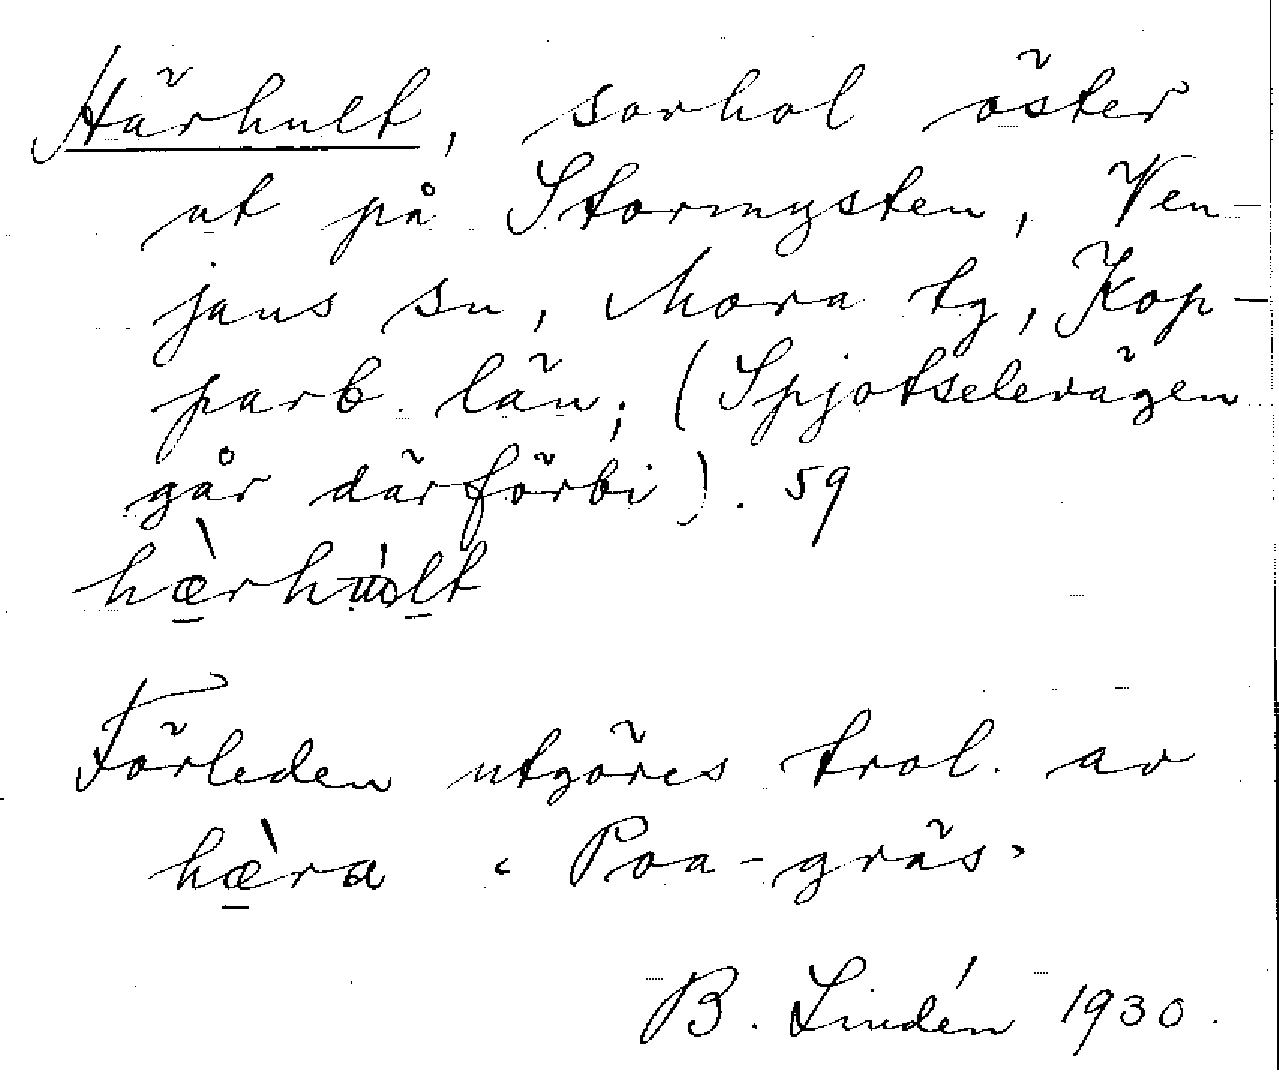 Härhult, sorhol öster
ut på Stormysten, Ven-
jans sn, Mora tg, Kop-
parb. län; (Spjotselevägen
går därförbi). 59
hæ̀rhu̇lt
Förleden utgöres trol. av
hæ̀ra ‹Poa-gräs›
B. Lindén 1930.